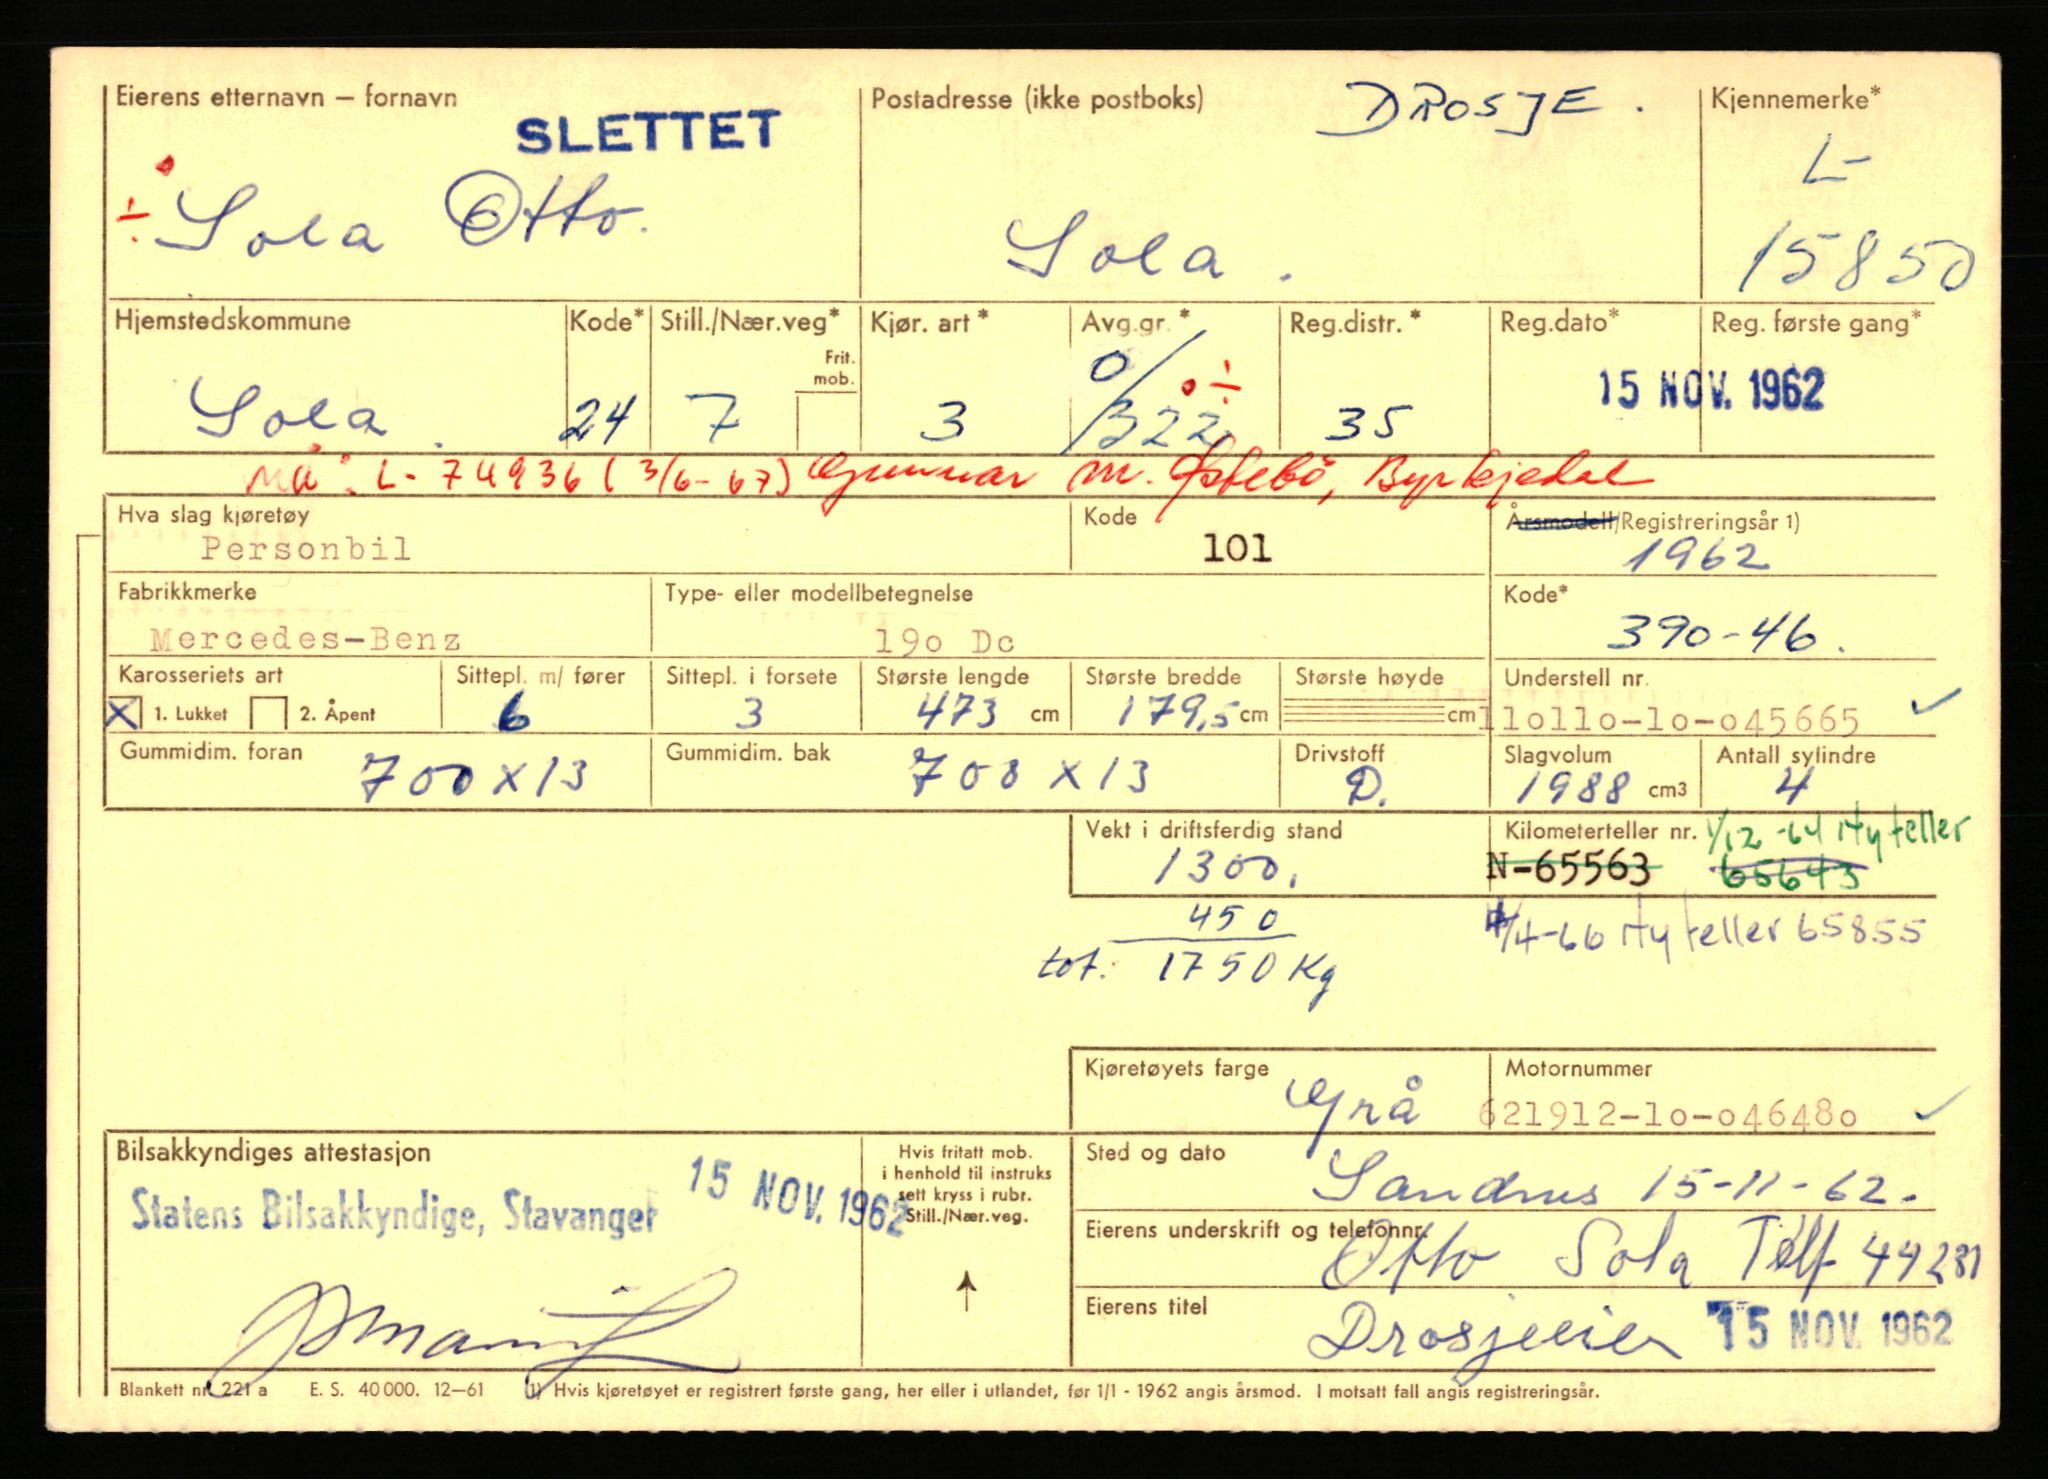 Eierens etternavn – fornavn
SLETTET
÷ Sola Otto.
Postadresse (ikke postboks)
DROSJE.
Sola.
Kjennemerke*
L-
15850
Hjemstedskommune
Sola.
Kode*
24
Still./Nær.veg*
7
Frit.
mob.
Kjør. art*
3
Avg.gr.*
0/
322 ÷
Reg.distr.*
35
Reg.dato*
Reg. første gang*
15 NOV. 1962
Nå: L- 74936 (3/6-67) Gunnar M. Østebö, Byrkjedal
Hva slag kjøretøy
Personbil
Kode
101
Årsmodell/Registreringsår 1)
1962
Fabrikkmerke
Mercedes-Benz
Type- eller modellbetegnelse
19o Dc
Kode*
390-46.
Karosseriets art
X 1. Lukket 2. Åpent
Sittepl. m/ fører
6
Sittepl. i forsete
3
Største lengde
473 cm
Største bredde
179,5 cm
Største høyde
cm
Understell nr.
11o11o-1o-o45665 ✓
Gummidim. foran
700 x 13
Gummidim. bak
700 x 13
Drivstoff
D.
Slagvolum
1988 cm3
Antall sylindre
4
Vekt i driftsferdig stand
1300.
450
tot. 1750 Kg
Kilometerteller nr. 1/12-64 Ny teller
N-65563 65643
4/4-66 Ny teller 65855
Kjøretøyets farge
Grå
Motornummer
621912-1o-o4648o ✓
Bilsakkyndiges attestasjon
15 NOV. 1962
Statens Bilsakkyndige, Stavanger
Hvis fritatt mob.
i henhold til instruks
sett kryss i rubr.
Still./Nær.veg.
Sted og dato
Sandnes 15-11-62.
Eierens underskrift og telefonnr.
Otto Sola Telf 44281
Eierens titel
Drosjeeier 15 NOV. 1962
Blankett nr. 221 a E. S. 40 000. 12–61 1) Hvis kjøretøyet er registrert første gang, her eller i utlandet, før 1/1 - 1962 angis årsmod. I motsatt fall angis registreringsår.